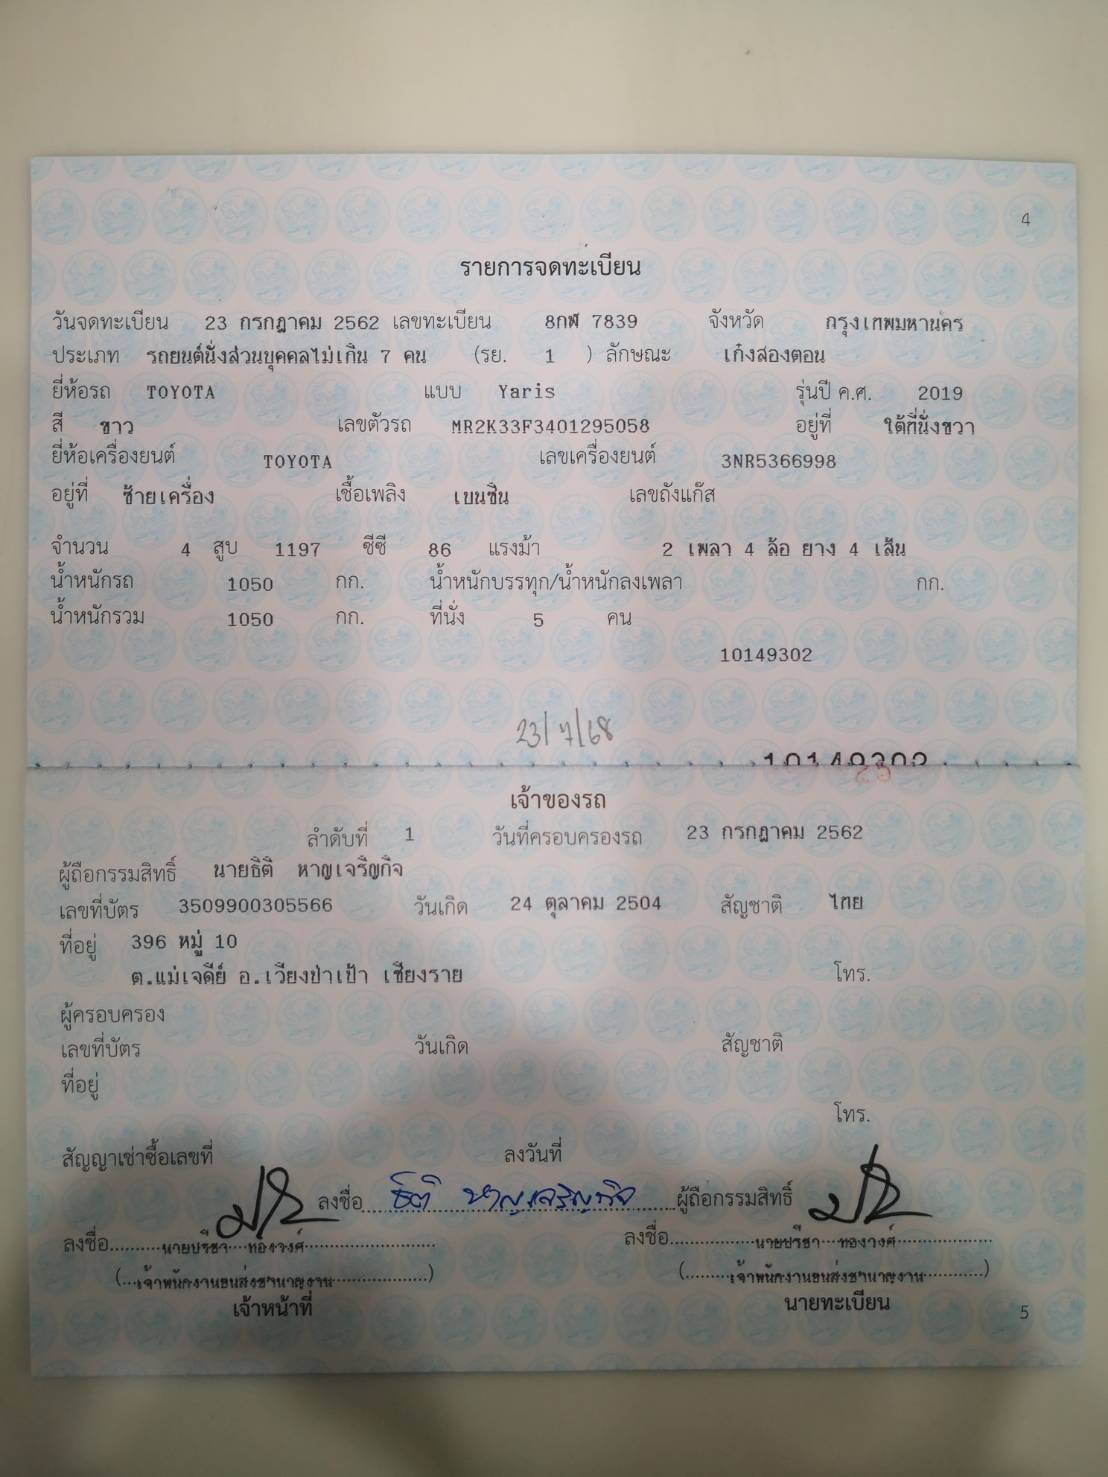 4
รายการจดทะเบียน
วันจดทะเบียน 23 กรกฎาคม 2562 เลขทะเบียน 8กฬ 7839 จังหวัด กรุงเทพมหานคร
ประเภท รถยนต์นั่งส่วนบุคคลไม่เกิน 7 คน (รย. 1 ) ลักษณะ เก๋งสองตอน
ยี่ห้อรถ TOYOTA แบบ Yaris รุ่นปี ค.ศ. 2019
สี ขาว เลขตัวรถ MR2K33F3401295058 อยู่ที่ ใต้ที่นั่งขวา
ยี่ห้อเครื่องยนต์ TOYOTA เลขเครื่องยนต์ 3NR5366998
อยู่ที่ ซ้ายเครื่อง เชื้อเพลิง เบนซิน เลขถังแก๊ส
จำนวน 4 สูบ 1197 ซีซี 86 แรงม้า 2 เพลา 4 ล้อ ยาง 4 เส้น
น้ำหนักรถ 1050 กก. น้ำหนักบรรทุก/น้ำหนักลงเพลา กก.
น้ำหนักรวม 1050 กก. ที่นั่ง 5 คน
10149302
23/7/68
10149302
เจ้าของรถ
ลำดับที่ 1 วันที่ครอบครองรถ 23 กรกฎาคม 2562
ผู้ถือกรรมสิทธิ์ นายธิติ หาญเจริญกิจ
เลขที่บัตร 3509900305566 วันเกิด 24 ตุลาคม 2504 สัญชาติ ไทย
ที่อยู่ 396 หมู่ 10
ต.แม่เจดีย์ อ.เวียงป่าเป้า เชียงราย โทร.
ผู้ครอบครอง
เลขที่บัตร วันเกิด สัญชาติ
ที่อยู่
โทร.
สัญญาเช่าซื้อเลขที่ ลงวันที่
ลงชื่อ ธิติ หาญเจริญกิจ ผู้ถือกรรมสิทธิ์
ลงชื่อ นายปรีชา ทองวงศ์ ลงชื่อ นายปรีชา ทองวงศ์
(เจ้าพนักงานขนส่งชำนาญงาน) (เจ้าพนักงานขนส่งชำนาญงาน)
เจ้าหน้าที่ นายทะเบียน
5